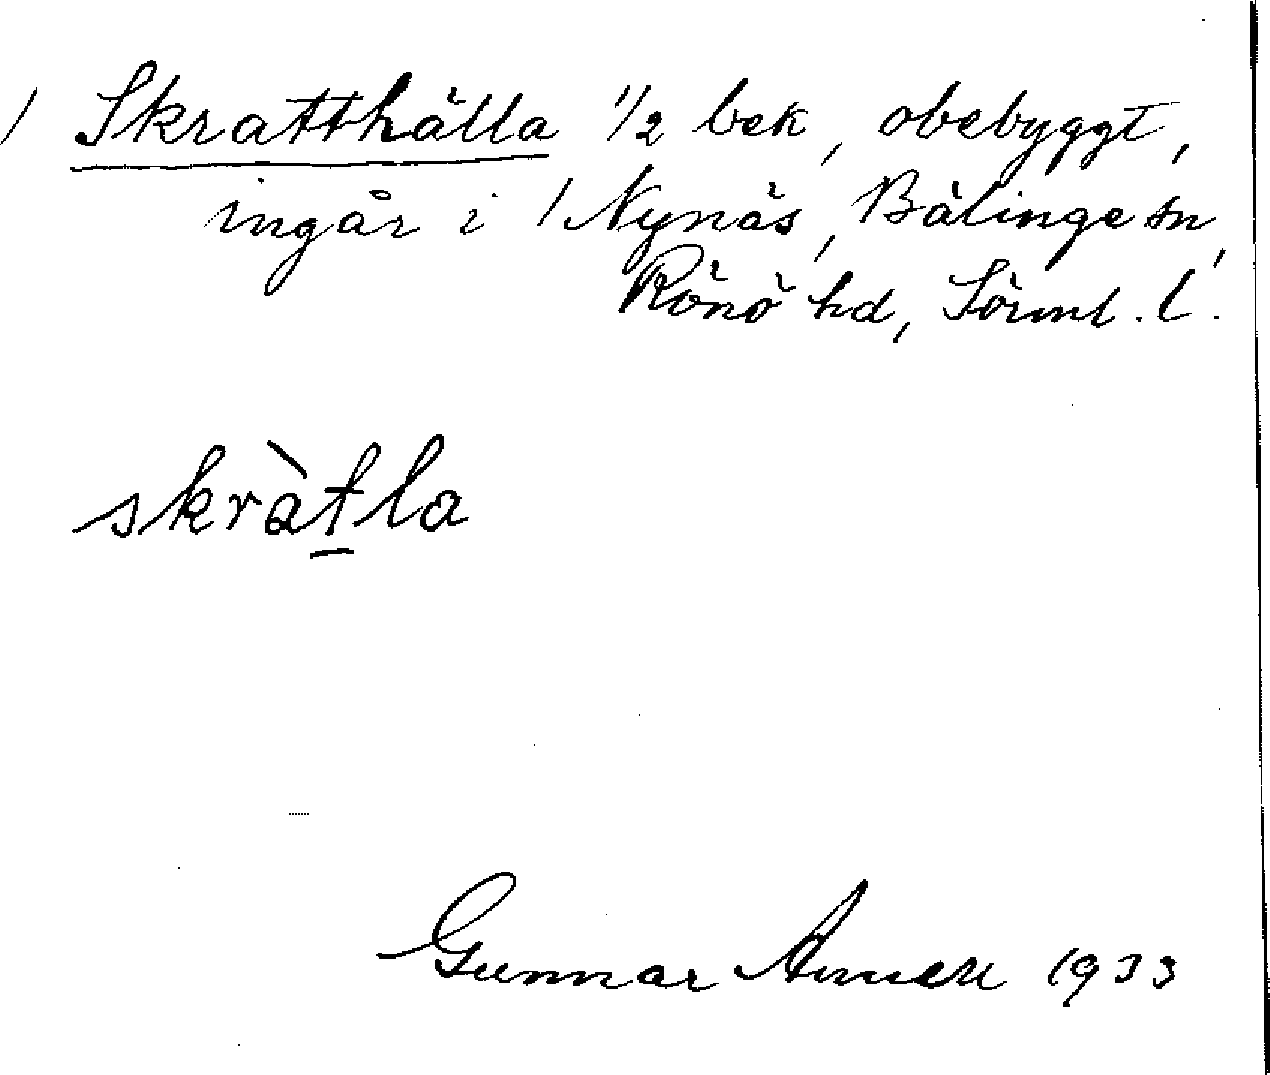 / Skratthälla 1/2 bek, obebyggt,
ingår i / Nynäs, Bälinge sn,
Rönö hd, Sörml. l.
skràt̲la
Gunnar 1933